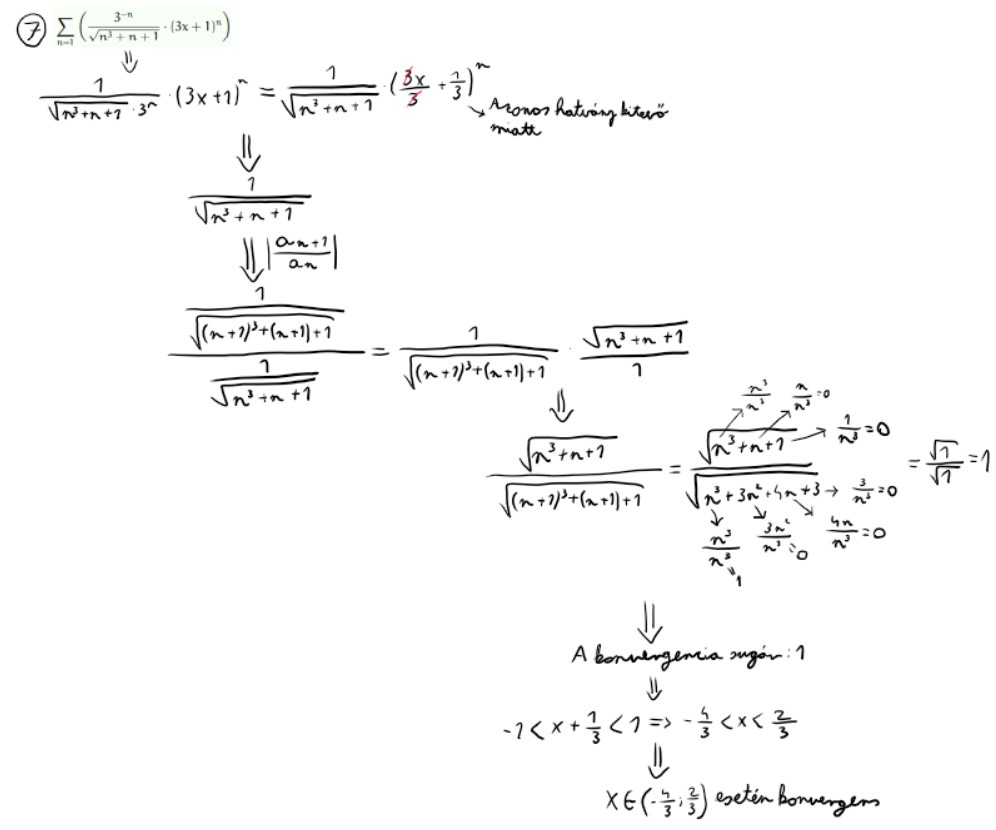 7 ∑_{n=1} ( 3^{-n} / √(n³ + n + 1) · (3x + 1)^n )
⇓
1 / (√(n³+n+1) · 3^n) · (3x+1)^n = 1 / √(n³+n+1) · (3x/3 + 1/3)^n
→ Azonos hatvány kitevő
miatt
⇓
1 / √(n³+n+1)
⇓ |an+1 / an|
(1 / √((n+1)³+(n+1)+1)) / (1 / √(n³+n+1)) = 1 / √((n+1)³+(n+1)+1) · √(n³+n+1) / 1
⇓
n³/n³ n/n³=0
√(n³+n+1) / √((n+1)³+(n+1)+1) = √(n³+n+1) / √(n³+3n²+4n+3) = √1/√1 = 1
→ 1/n³=0
→ 3/n³=0
n³/n³ = 1 3n²/n³=0 4n/n³=0
⇓
A konvergencia sugár: 1
⇓
-1 < x + 1/3 < 1 => -4/3 < x < 2/3
⇓
x ∈ (-4/3; 2/3) esetén konvergens